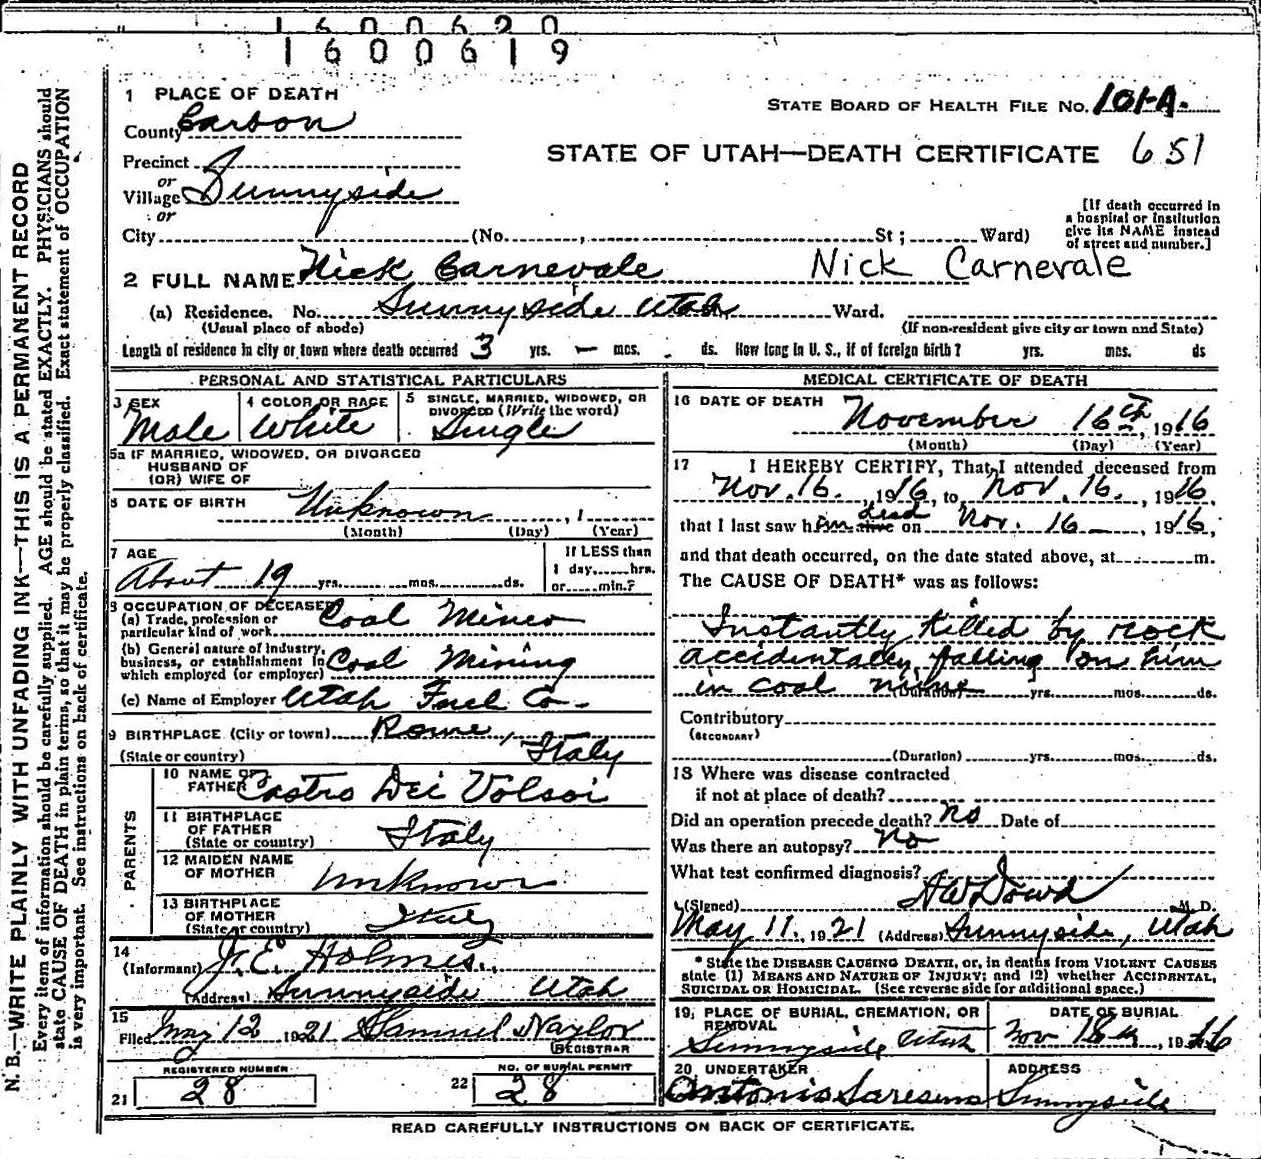 1600620
1600619
1 PLACE OF DEATH
STATE BOARD OF HEALTH FILE No. 101-A.
County Carbon
STATE OF UTAH—DEATH CERTIFICATE 651
Precinct
or
Village Sunnyside
or
City (No. , St ; Ward)
[If death occurred in
a hospital or institution
give its NAME instead
of street and number.]
2 FULL NAME Nick Carnevale Nick Carnevale
(a) Residence. No. Sunnyside Utah Ward.
(Usual place of abode) (If non-resident give city or town and State)
Length of residence in city or town where death occurred 3 yrs. — mos. ds. How long in U. S., if of foreign birth? yrs. mos. ds
PERSONAL AND STATISTICAL PARTICULARS
3 SEX
Male
4 COLOR OR RACE
White
5 SINGLE, MARRIED, WIDOWED, OR
DIVORCED (Write the word)
Single
5a IF MARRIED, WIDOWED, OR DIVORCED
HUSBAND OF
(OR) WIFE OF
6 DATE OF BIRTH Unknown , 1
(Month) (Day) (Year)
7 AGE
About 19 yrs. mos. ds.
If LESS than
1 day hrs.
or min.?
8 OCCUPATION OF DECEASED
(a) Trade, profession or
particular kind of work Coal Miner
(b) General nature of Industry,
business, or establishment in
which employed (or employer) Coal Mining
(c) Name of Employer Utah Fuel Co.
9 BIRTHPLACE (City or town) Rome,
(State or country) Italy
PARENTS
10 NAME OF
FATHER Castro Dei Volsoi
11 BIRTHPLACE
OF FATHER
(State or country) Italy
12 MAIDEN NAME
OF MOTHER Unknown
13 BIRTHPLACE
OF MOTHER
(State or country) Italy
14
(Informant) J. E. Holmes.
(Address) Sunnyside Utah
15
Filed May 12 1921 Samuel Naylor
REGISTRAR
REGISTERED NUMBER
21 28
NO. OF BURIAL PERMIT
22 28
MEDICAL CERTIFICATE OF DEATH
16 DATE OF DEATH November 16th, 1916
(Month) (Day) (Year)
17 I HEREBY CERTIFY, That I attended deceased from
Nov. 16. , 1916, to Nov. 16. , 1916
that I last saw him alive dead on Nov. 16 — , 1916,
and that death occurred, on the date stated above, at m.
The CAUSE OF DEATH* was as follows:
Instantly killed by rock
accidentally falling on him
in coal mine yrs. mos. ds.
Contributory
(SECONDARY)
(Duration) yrs. mos. ds.
18 Where was disease contracted
if not at place of death?
Did an operation precede death? No Date of
Was there an autopsy? No
What test confirmed diagnosis?
(Signed) A W Dowd M. D.
May 11., 1921 (Address) Sunnyside, Utah
* State the DISEASE CAUSING DEATH, or, in deaths from VIOLENT CAUSES
state (1) MEANS AND NATURE OF INJURY; and (2) whether ACCIDENTAL,
SUICIDAL OR HOMICIDAL. (See reverse side for additional space.)
19, PLACE OF BURIAL, CREMATION, OR
REMOVAL
Sunnyside Utah
DATE OF BURIAL
Nov 18th, 1916
20 UNDERTAKER
Antonio
ADDRESS
Sunnyside
READ CAREFULLY INSTRUCTIONS ON BACK OF CERTIFICATE.
N. B.—WRITE PLAINLY WITH UNFADING INK—THIS IS A PERMANENT RECORD
Every item of information should be carefully supplied. AGE should be stated EXACTLY. PHYSICIANS should
state CAUSE OF DEATH in plain terms, so that it may be properly classified. Exact statement of OCCUPATION
is very important. See instructions on back of certificate.